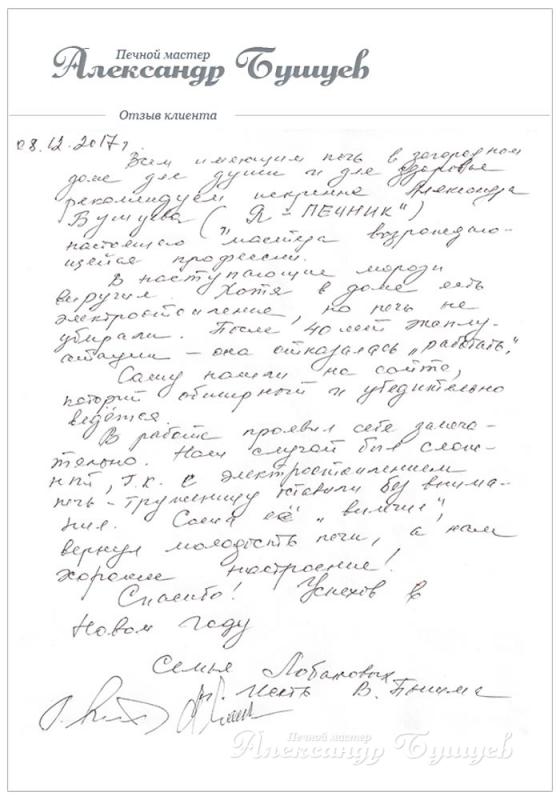 Печной мастер
Александр Бушуев
Отзыв клиента
08.12.2017г.
Всем имеющим печь в загородном
доме для души и для здоровья
рекомендуем искренне Александра
Бушуева ("Я - ПЕЧНИК")
настоящего мастера возрождаю-
щейся профессии.
В наступающие морозы
выручил. Хотя в доме есть
электроотопление, но печь не
убирали. После 40 лет эксплу-
атации - она отказалась "работать".
Сашу нашли на сайте,
который обширный и убедительно
ведётся.
В работе проявил себя замеча-
тельно. Наш случай был слож-
ный, т.к. с электроотоплением
печь-труженицу оставили без внима-
ния. Саша её "вылечил",
вернул молодость печи, а нам
хорошее настроение!
Спасибо! Успехов в
Новом Году
Семья Лобановых
В.
Печной мастер
Александр Бушуев